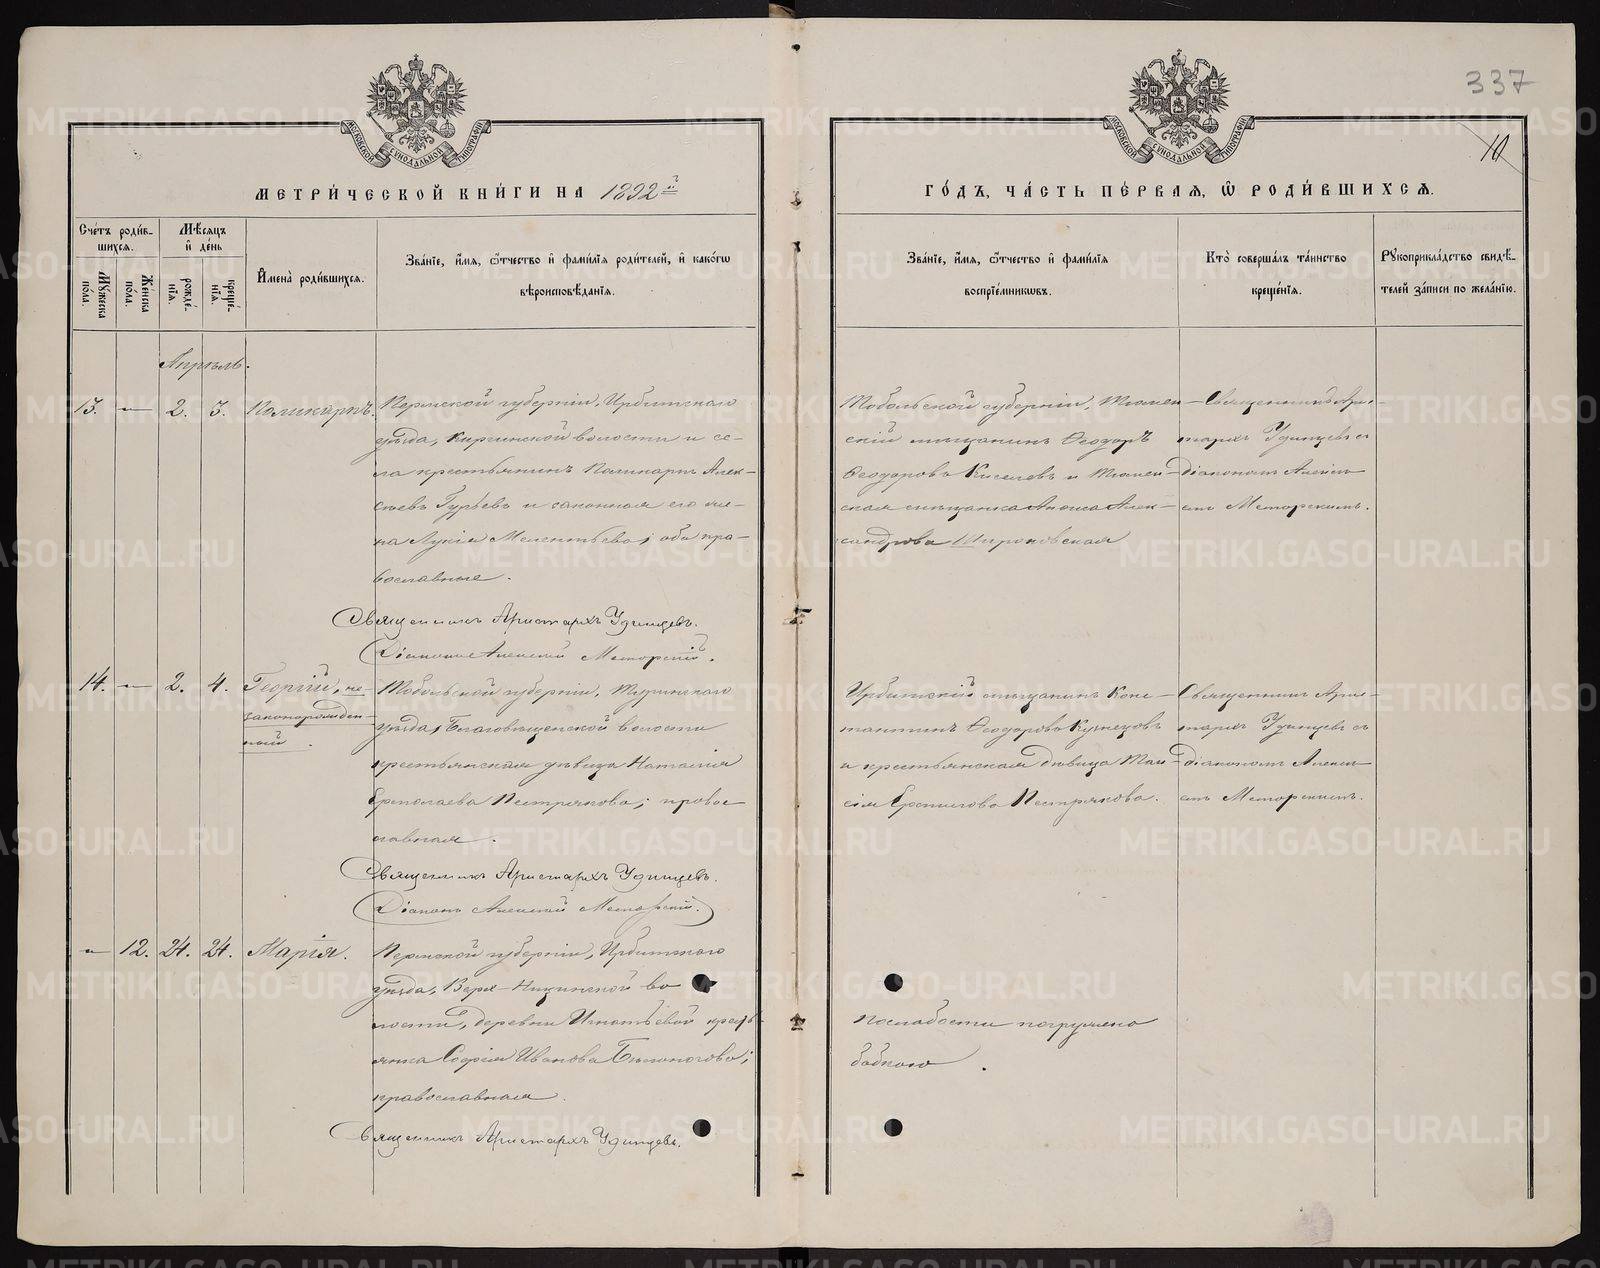 337
10
МОСКОВСКОЙ СУНОДАЛЬНОЙ ТИПОГРАФІИ
МОСКОВСКОЙ СУНОДАЛЬНОЙ ТИПОГРАФІИ
МЕТРИ́ЧЕСКОЙ КНИ́ГИ НА 1892й
ГО́ДЪ, ЧА́СТЬ ПЕ́РВАЯ, Ѽ РОДИ́ВШИХСЯ.
Сче́тъ роди́в-
шихся.
Мѣ́сяцъ
и҆ де́нь
Му́жеска
по́ла.
Же́нска
по́ла.
рожде́-
нїя.
креще́-
нїя.
И҆мена̀ роди́вшихся.
Зва́нїе, и҆́мя, ѻ҆́тчество и҆ фами́лїя роди́телей, и҆ како́гѡ
вѣроисповѣ́данїя.
Зва́нїе, и҆́мя, ѻ҆́тчество и҆ фами́лїя
воспрїе́мникѡвъ.
Кто̀ соверша́лъ та́инство
креще́нїя.
Рꙋкоприкла́дство свидѣ́-
телей за́писи по жела́нїю.
Апрѣль.
13. — 2. 3. Поликарпъ.
Пермской губерніи, Ирбитскаго
уѣзда, Киргинской волости и се-
ла крестьянинъ Поликарпъ Алек-
сѣевъ Гурьевъ и законная его же-
на Лукія Мелентьева; оба пра-
вославные.
Священникъ Аристархъ Удинцевъ.
Діаконъ Алексій Меморскій.
Тобольской губерніи, Тюмен-
скій мѣщанинъ Ѳеодоръ
Ѳеодоровъ Киселевъ и Тюмен-
ская мѣщанка Алек-
сандрова Широковская
Священникъ Ари-
стархъ Удинцевъ съ
діакономъ Алексі-
емъ Меморскимъ.
14. — 2. 4. Георгій, не-
законорожден-
ный.
Тобольской губерніи, Туринскаго
уѣзда, Благовѣщенской волости
крестьянская дѣвица Наталія
Ермолаева Пестрякова; право-
славная.
Священникъ Аристархъ Удинцевъ.
Діаконъ Алексій Меморскій.
Ирбитскій мѣщанинъ Конс-
тантинъ Ѳеодоровъ Кузнецовъ
и крестьянская дѣвица Таи-
сія Пестрякова.
Священникъ Арис-
тархъ Удинцевъ съ
діакономъ Алексі-
емъ Меморскимъ.
— 12. 24. 24. Марія.
Пермской губерніи, Ирбитскаго
уѣзда, Верх-Ницинской во
лости, деревни Игнатьевой крестья-
янка Софія Иванова Бѣлоногова;
православная.
Священникъ Аристархъ Удинцевъ.
По слабости погружено
бабкою.